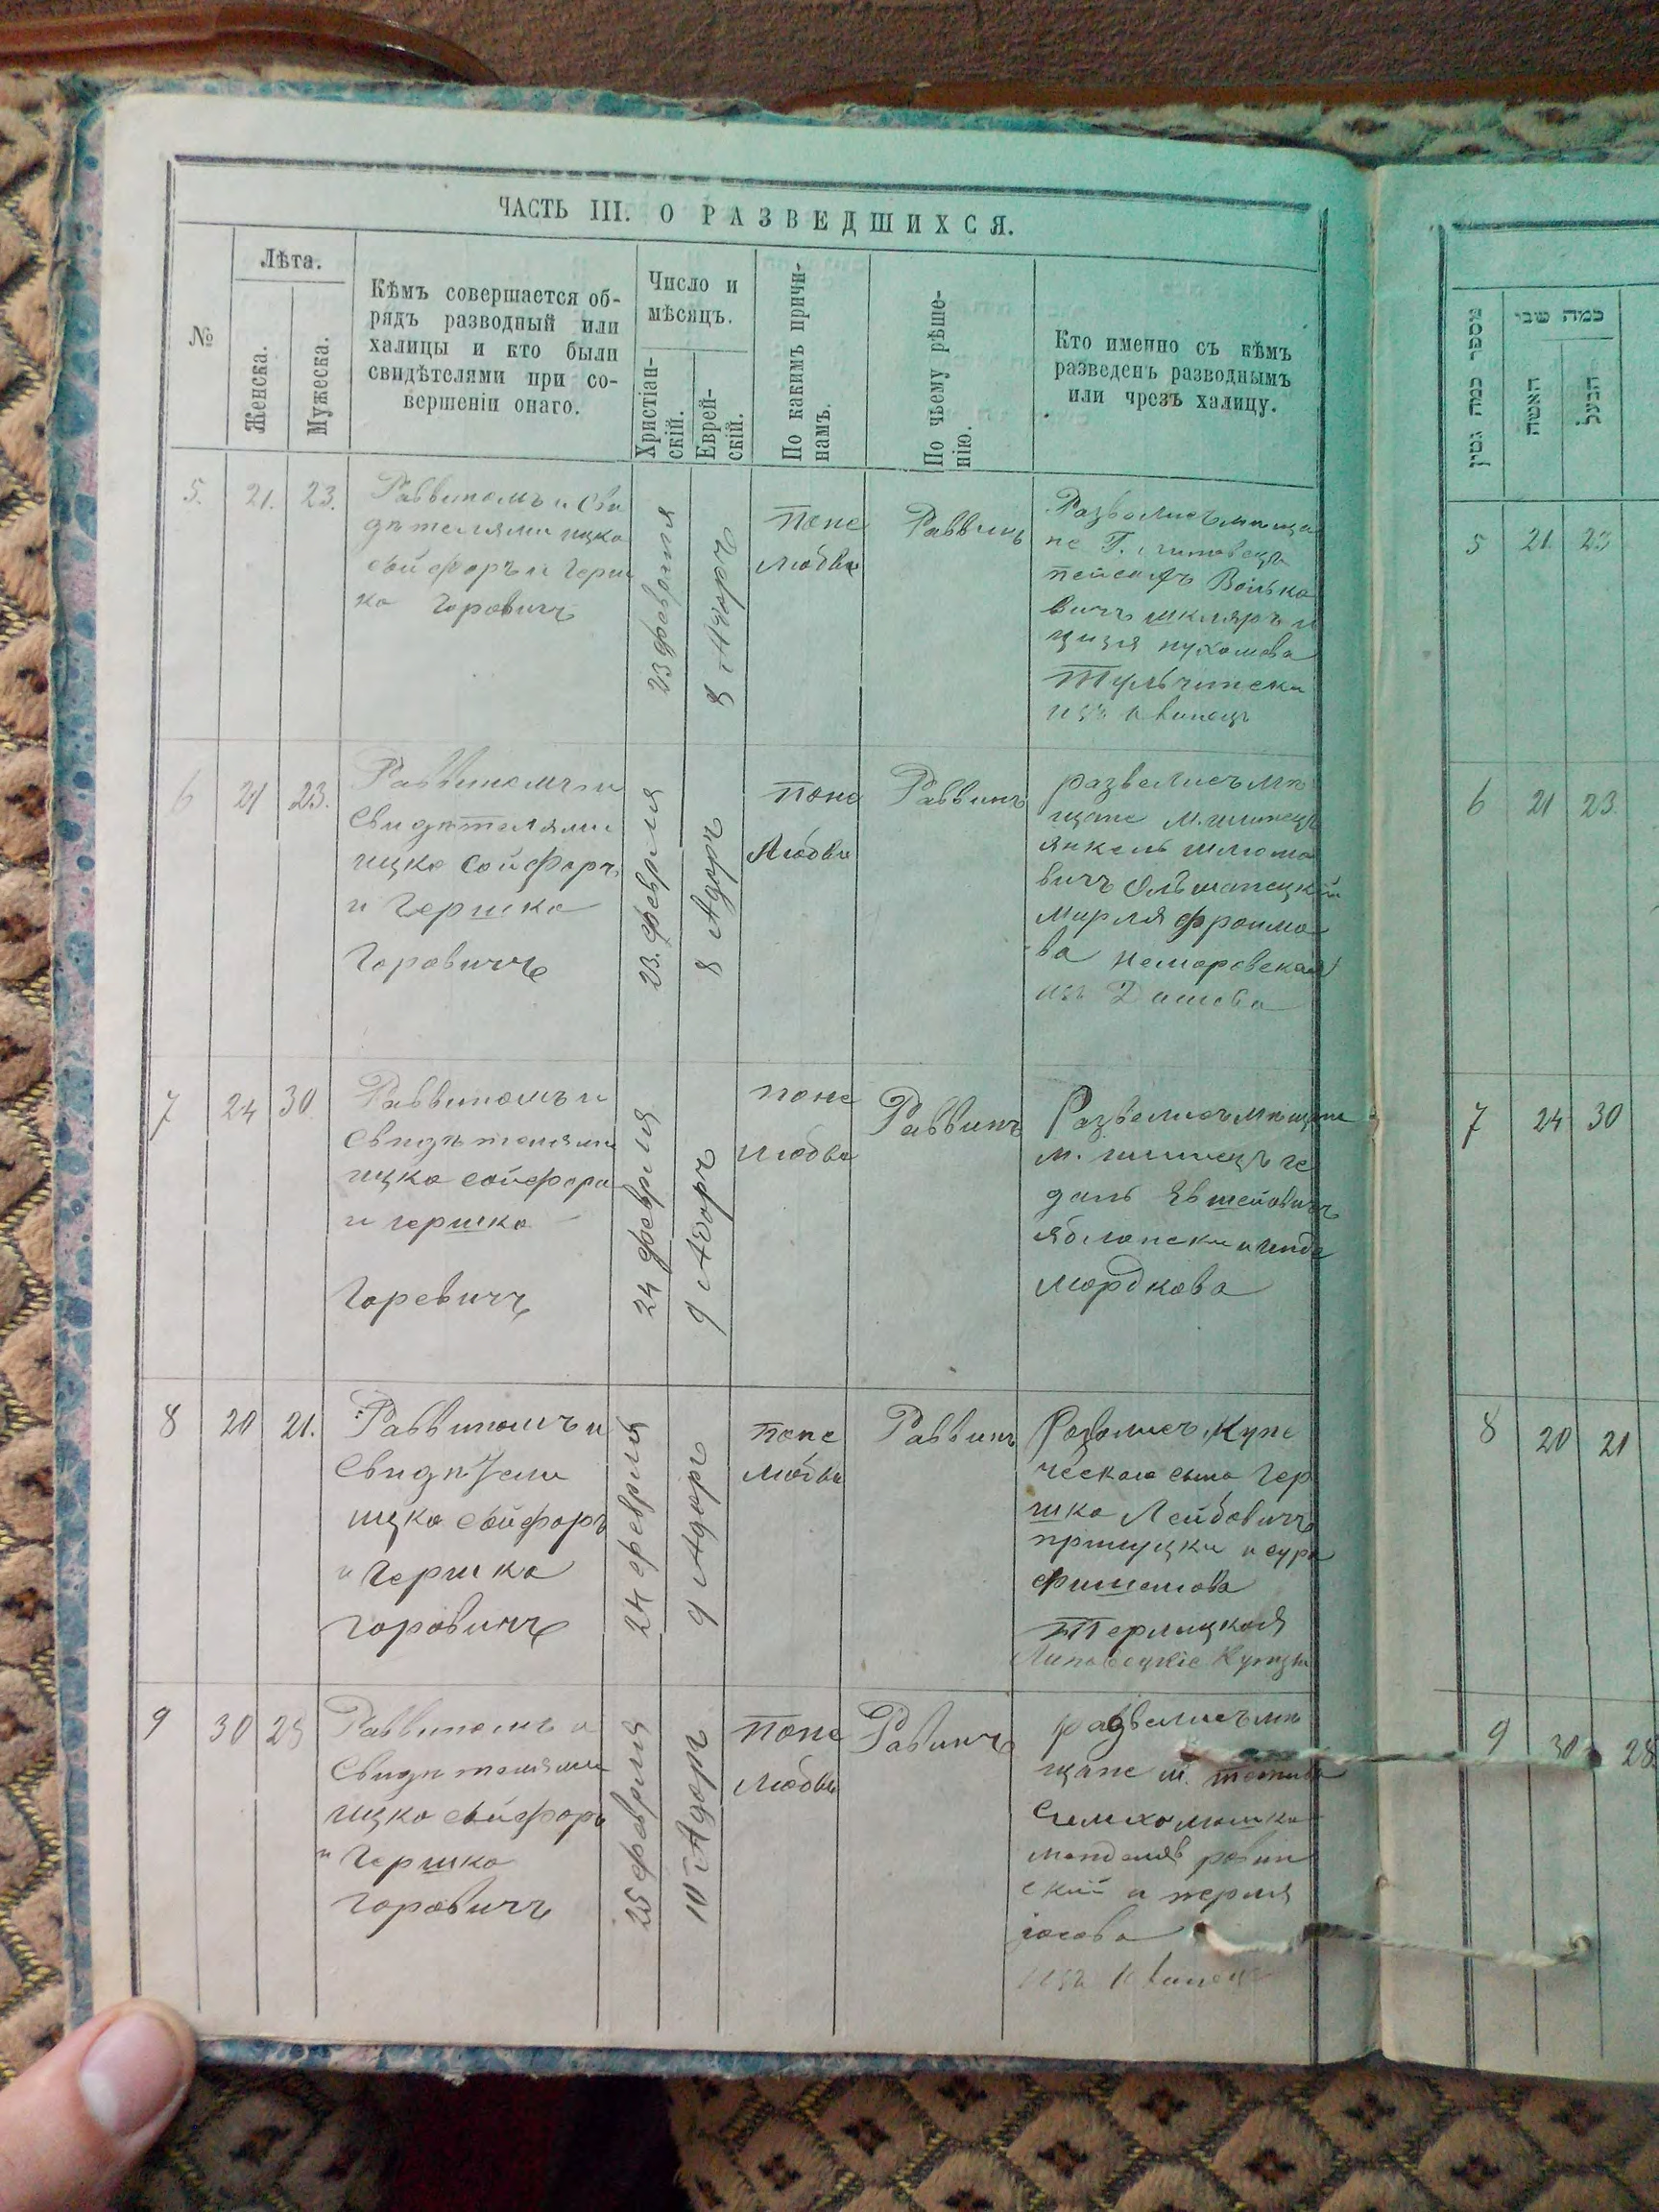 ЧАСТЬ III. О РАЗВЕДШИХСЯ.
№
Лѣта.
Женска.
Мужеска.
Кѣмъ совершается об-
рядъ разводный или
халицы и кто были
свидѣтелями при со-
вершеніи онаго.
Число и
мѣсяцъ.
Христіан-
скій.
Еврей-
скій.
По какимъ причи-
намъ.
По чьему рѣше-
нію.
Кто именно съ кѣмъ
разведенъ разводнымъ
или чрезъ халицу.
5.
21.
23.
Раввиномъ и сви
дѣтелями ицко
сойферъ и Герш
ко Горовичъ
23 февраля
8 Адоръ
поне
любви
Раввинъ
Развелись мѣща
не Г.
пейсахъ Волько
вичъ шкляръ и
цизя нухомова
Тульчинска
изъ
6
21
23.
Раввиномъ и
свидѣтелями
ицко сойферъ
и Гершко
Горовичъ
23. февраля
8 Адоръ
поне
Любви
Раввинъ
развелись мѣ
щане м. илинецъ
янкель шлиомо
вичъ Ольшанецкій
Мирля фроимо
ва немеровская
изъ Дашева
7
24
30
Раввиномъ и
свидѣтелями
ицко сойфера
и гершко
Горевичъ
24 февраля
9 Адоръ
поне
любви
Раввинъ
Развелись мѣщани
м. илинецъ ге
даль Евшейовичъ
яблонски и
мордкова
8
20
21.
Раввиномъ и
свидѣтели
ицко сойферъ
и Гершко
горовичъ
24 февраля
9 Адоръ
поне
любви
Раввинъ
Розвелись Купе
ческаго сына Гер
шко Лейбовичъ
прилуцки и сура
фишелиова
Терлицкая
Липовецкіе Купцы
9
30
28
Раввиномъ и
свидѣтелями
ицко сойферъ
и Гершко
горовичъ
25 февраля
10 Адоръ
поне
любви
Равинъ
развелись мѣ
щане м.
мендель ровин
скій и перля
іосева
изъ
מספר כמה גטין
כמה שני
האשה
הבעל
5
21
23
6
21
23.
7
24
30
8
20
21
9
30
28